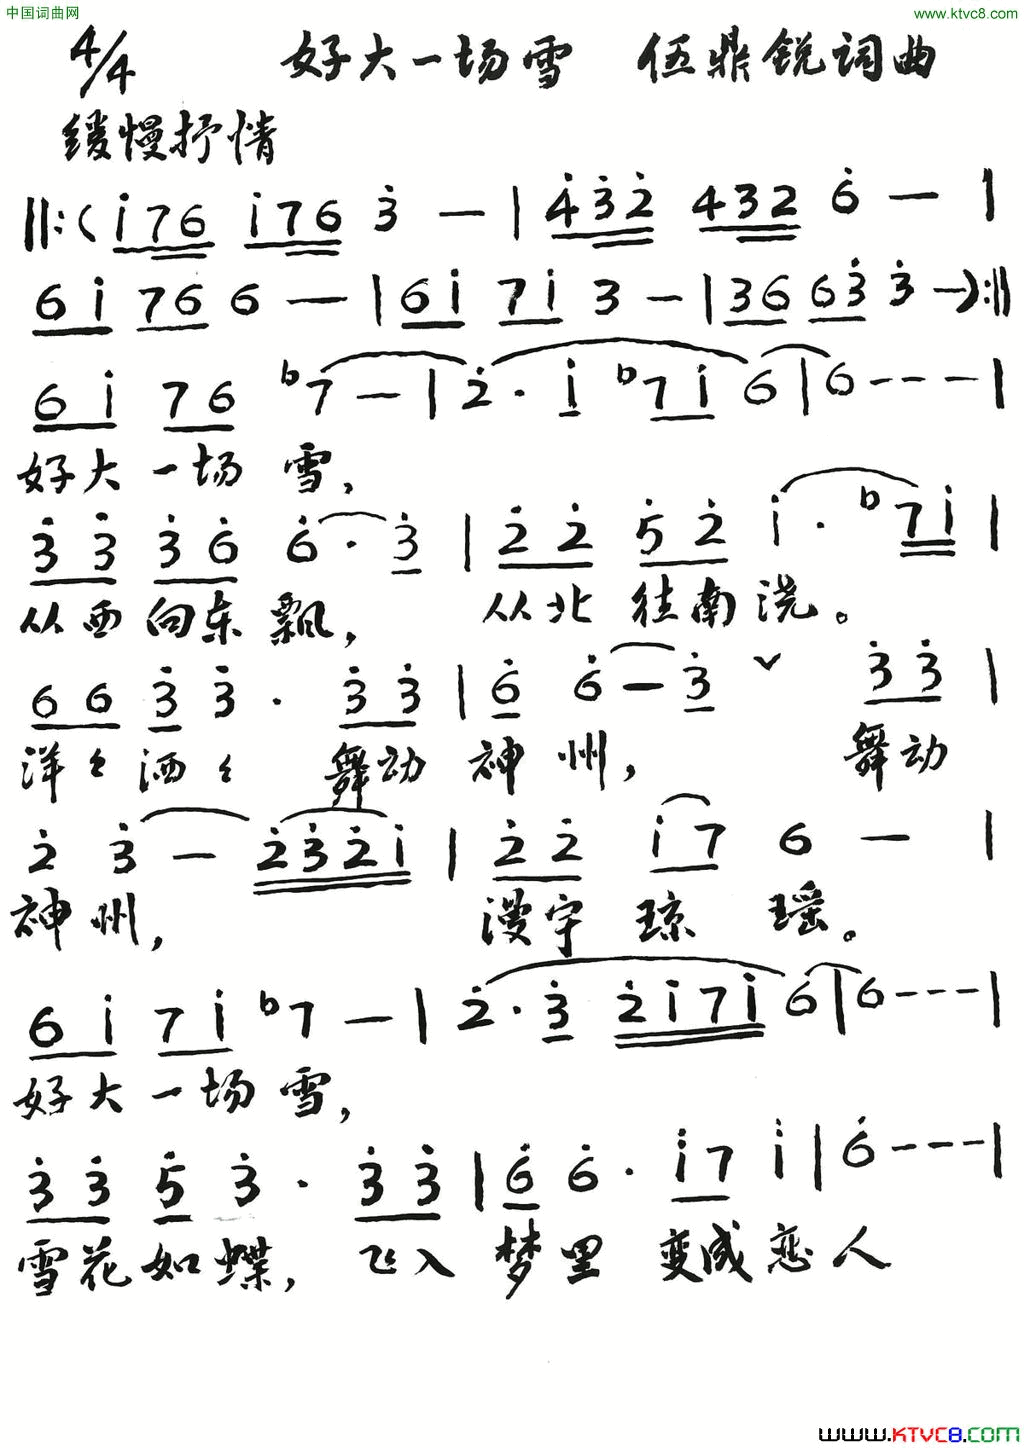 中国词曲网 www.ktvc8.com
4/4 好大一场雪 伍鼎锐词曲
缓慢抒情
‖:( i̇76 i̇76 3̇ — | 4̇3̇2̇ 432 6̇ — |
6i̇ 76 6 — | 6i̇ 7i̇ 3 — | 36 63̇ 3̇ — ):‖
6i̇ 76 b7 — | 2̇· i̇ b7i̇ 6 | 6 - - - |
好大一场雪,
3̇3̇ 3̇6̇ 6̇· 3̇ | 2̇2̇ 5̇2̇ i̇· b7i̇ |
从西向东飘, 从北往南浇。
66 3̇ 3̇· 3̇3̇ | 6̇ 6̇ — 3̇ ˅ 3̇3̇ |
洋々洒々 舞动神州, 舞动
2̇ 3̇ — 2̇3̇2̇i̇ | 2̇2̇ i̇7 6 — |
神州, 漫宇琼瑶。
6i̇ 7i̇ b7 — | 2̇· 3̇ 2̇i̇7i̇ 6̇ | 6̇ - - - |
好大一场雪,
3̇3̇ 5̇ 3̇· 3̇3̇ | 6̇ 6̇· i̇7 i̇ | 6̇ - - - |
雪花如蝶, 飞入梦里变成恋人
www.KTVC8.com